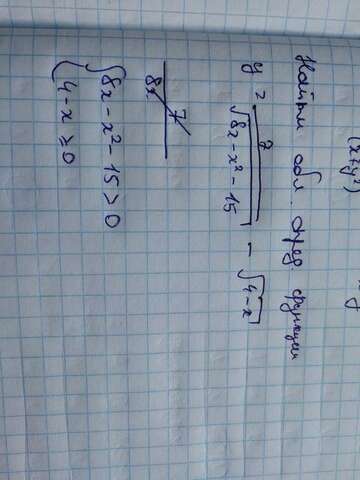 (x+y²)
y
Найти обл. опред. функции
y = 7/√(8x-x²-15) - √(4-x)
7
8x
{8x-x²-15>0
{4-x⩾0